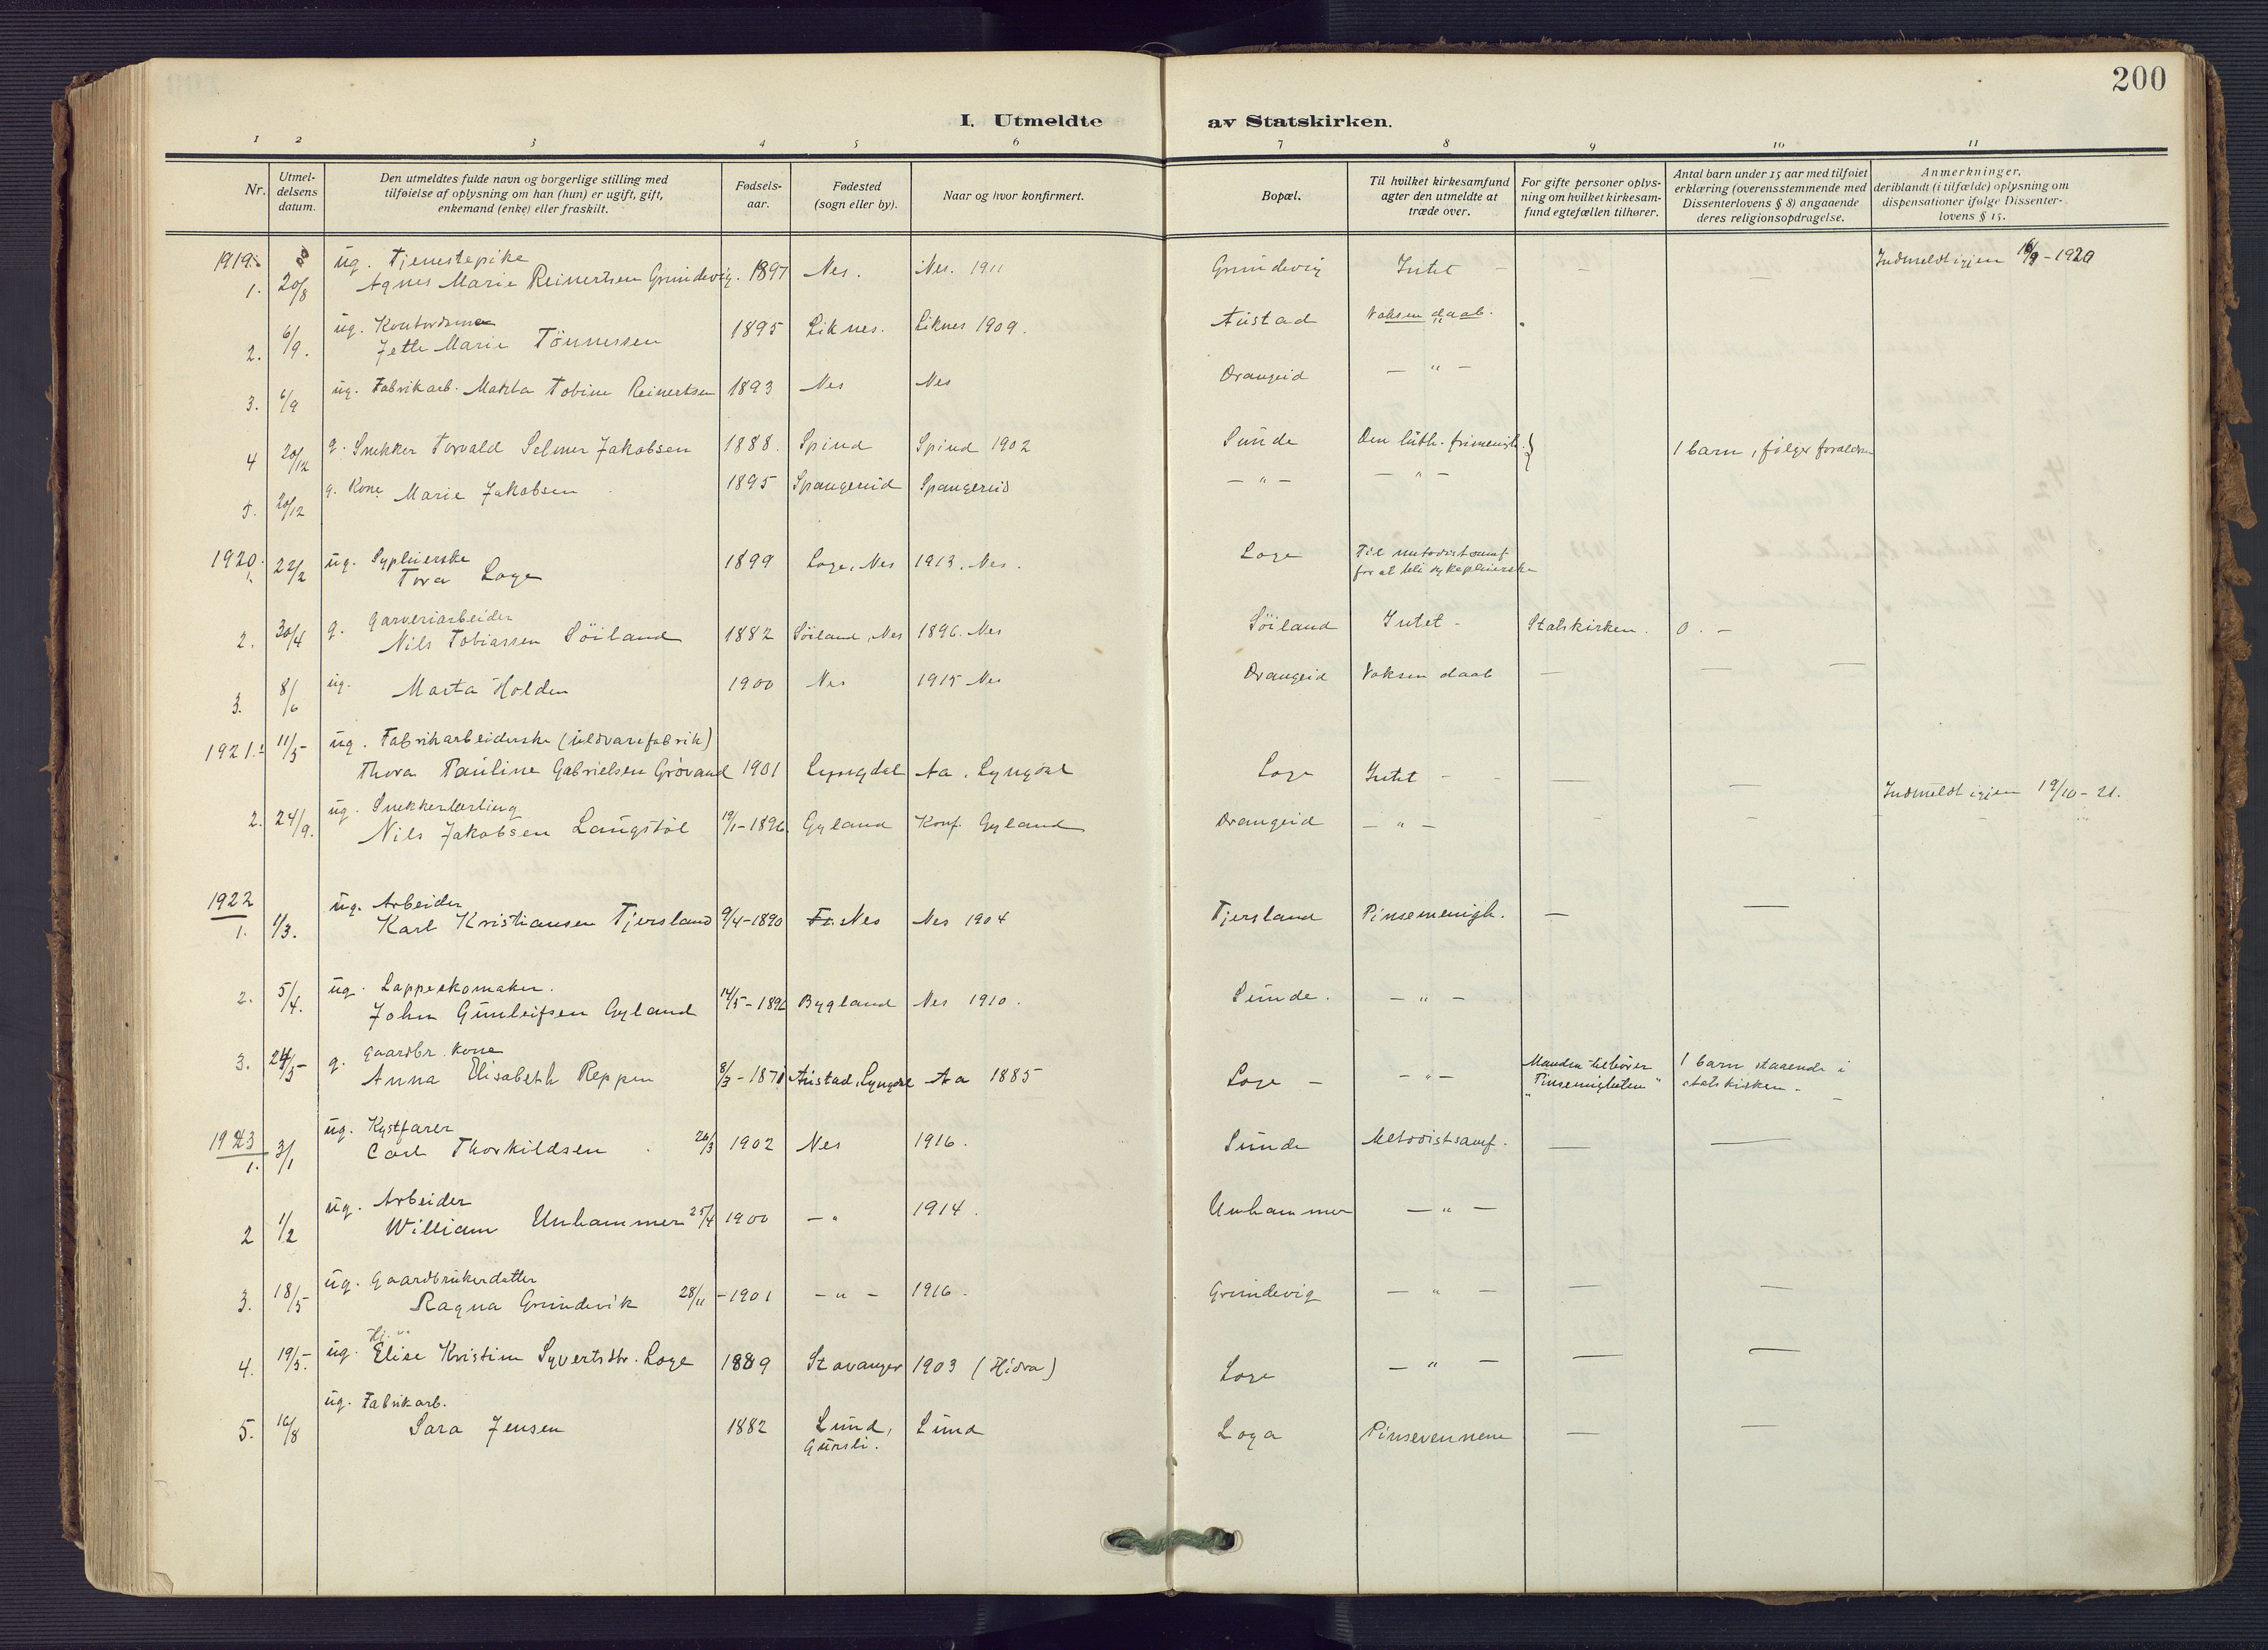 200
I. Utmeldte av Statskirken.
1 2 3 4 5 6 7 8 9 10 11
Nr.
Utmel-
delsens
datum.
Den utmeldtes fulde navn og borgerlige stilling med
tilføielse af oplysning om han (hun) er ugift, gift,
enkemand (enke) eller fraskilt.
Fødsels-
aar.
Fødested
(sogn eller by).
Naar og hvor konfirmert.
Bopæl.
Til hvilket kirkesamfund
agter den utmeldte at
træde over.
For gifte personer oplys-
ning om hvilket kirkesam-
fund egtefællen tilhører.
Antal barn under 15 aar med tilføiet
erklæring (overensstemmende med
Dissenterlovens § 8) angaaende
deres religionsopdragelse.
Anmerkninger,
deriblandt (i tilfælde) oplysning om
dispensationer ifølge Dissenter-
lovens § 15.
1919.
ug. Tjenestepike
1. 20/8 Agnes Marie Reinertsen Grundevig. 1897 Nes. Nes. 1911 Grundevig Intet - - - Indmeldt igjen /9 - 1920
ug. Kontordame
2. 6/9. Jette Marie Tönnessen 1895 Liknes. Liknes 1909. Austad Voksen daab.
3. 6/9 ug. Fabrikarb. Makta Tobine Reinertsen 1893 Nes Nes Drangeid - " -
4 20/12 g. Snekker Torvald Selmer Jakobsen 1888. Spind Spind 1902 Sunde Den luth. frimenigh. } 1 barn, følger foraldren
5. 20/12 g. Kone Marie Jakobsen 1895 Spangereid Spangereid - " - - " -
1920.
1. 22/2 ug. Sypleierske
Tora Loge 1899 Loge, Nes 1913. Nes. Loge Til metodistsamf
for at bli sykepleierske
g. Garveriarbeider
2. 30/4 Nils Tobiassen Söiland 1882 Söiland, Nes 1896. Nes Söiland Intet - Statskirken. 0. -
3. 8/6 ug. Marta Holden 1900 Nes 1915 Nes Drangeid Voksen daab - - -
1921. 1 11/5 ug. Fabrikarbeiderske (uldvarefabrik)
Thora Pauline Gabrielsen Grövand 1901 Lyngdal Aa, Lyngdal Loge Intet - - - -
ug. Snekkerlærling
2. 24/9. Nils Jakobsen Langstöl 19/1-1896. Gyland Konf. Gyland Drangeid - " - - - Indmeldt igjen 19/10 - 21.
1922
ug. Arbeider
1. 1/3. Karl Kristiansen Tjersland 9/4-1890 Nes Nes 1904 Tjersland Pinsemenigh. - -
ug. Lappeskomaker.
2. 5/4. John Gunleifsen Gyland 14/5-1896 Bygland Nes 1910. Sunde. - " -
g. Gaardbr. kone
3. 24/5 Anna Elisabeth Reppen 8/3-1871 Austad, Lyngdal Aa 1885 Loge - - " - Manden tilhører
"Pinsemigheten" 1 barn staaende i
statskirken -
1923
ug. Kystfarer
1. 3/1 Carl Thorkildsen 26/3 1902 Nes 1916. Sunde Metodistsamf. - -
ug. Arbeider
2 1/2 William Unhammer 25/4 1900 - " 1914. Unhammer - " -
ug. Gaardbrukerdatter
3. 18/5 Ragna Grundevik 28/11 - 1901 - " - 1916. Grundevig - " - - -
4. 19/5. ug. Elise Kristine Syvertsdtr. Loge 1889 Stavanger 1903 (Hidra) Loge - " - - -
ug. Fabrikarb.
5. 16/8 Sara Jensen 1882 Lund,
Gursli. Lund Loga Pinsevennene - -